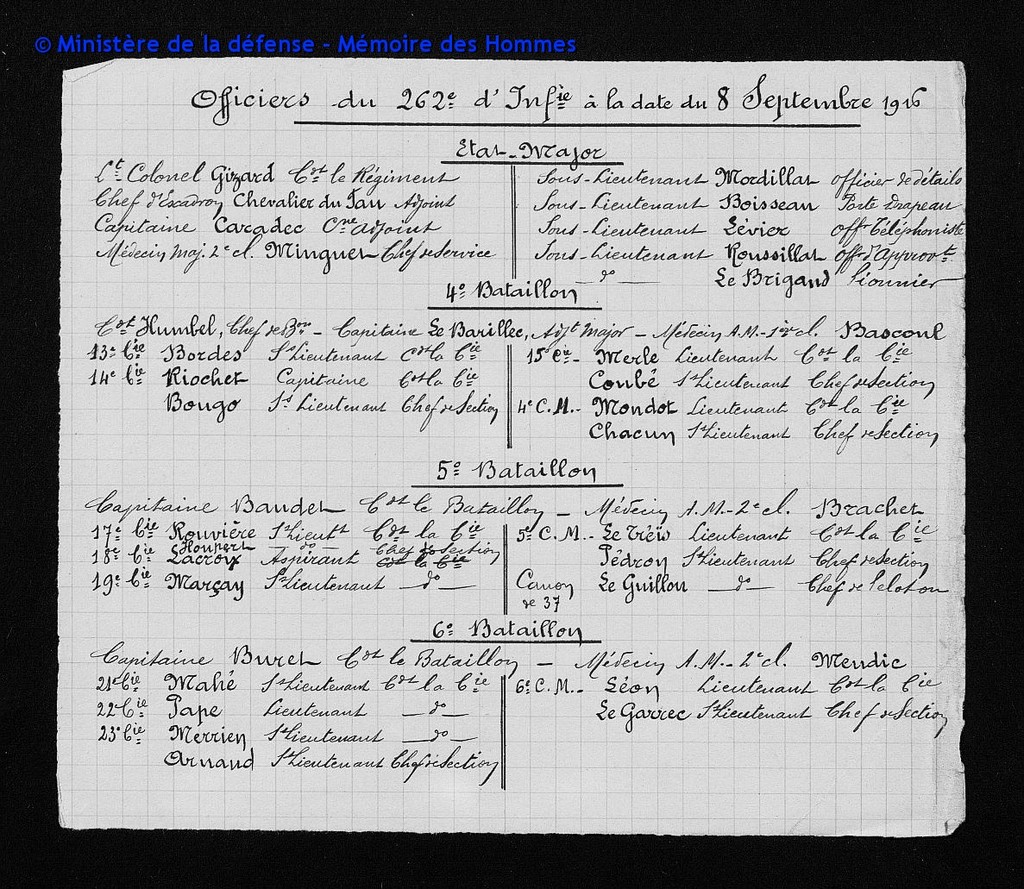 © Ministère de la défense - Mémoire des Hommes
Officiers du 262e d'Infie à la date du 8 Septembre 1916
Etat-Major
Lt Colonel Gizard Cdt le Régiment
Chef d'Escadron Chevalier du Fau Adjoint
Capitaine Caradec Cne adjoint
Médecin maj. 2e cl. Minguet Chef de service
Sous-Lieutenant Mordillat officier de détails
Sous-Lieutenant Boisseau Porte drapeau
Sous-Lieutenant Lévier offr Téléphoniste
Sous-Lieutenant Roussillat offr d'approvt
— do — Le Brigand Pionnier
4e Bataillon
Cdt Humbel, Chef de Bon - Capitaine Le Barillec, Adjt Major - Médecin A.M. - 1ère cl. Bascoul
13e Cie Bordes S/Lieutenant Cdt la Cie
14e Cie Riochet Capitaine Cdt la Cie
Bougo Ss Lieutenant Chef de Section
15e Cie - Merle Lieutenant Cdt la Cie
Coubé S/Lieutenant Chef de Section
4e C.M. - Mondot Lieutenant Cdt la Cie
Chacun S/Lieutenant Chef de Section
5e Bataillon
Capitaine Baudet Cdt le Bataillon - Médecin A.M. - 2e cl. Brachet
17e Cie Rouvière S/Lieutt Cdt la Cie
Houpert — do — Chef de Section
18e Cie Lacroix Aspirant Cdt la Cie
19e Cie Marçay S/Lieutenant — do —
5e C.M. - Le Tréïs Lieutenant Cdt la Cie
Pédron S/Lieutenant Chef de Section
Canon de 37 Le Guillou — do — Chef de Peloton
6e Bataillon
Capitaine Buret Cdt le Bataillon - Médecin A.M. - 2e cl. Mendic
21e Cie Mahé S/Lieutenant Cdt la Cie
22e Cie Pape Lieutenant — do —
23e Cie Merrien S/Lieutenant — do —
Arnaud S/Lieutenant Chef de Section
6e C.M. - Léon Lieutenant Cdt la Cie
Le Garrec S/Lieutenant Chef de Section